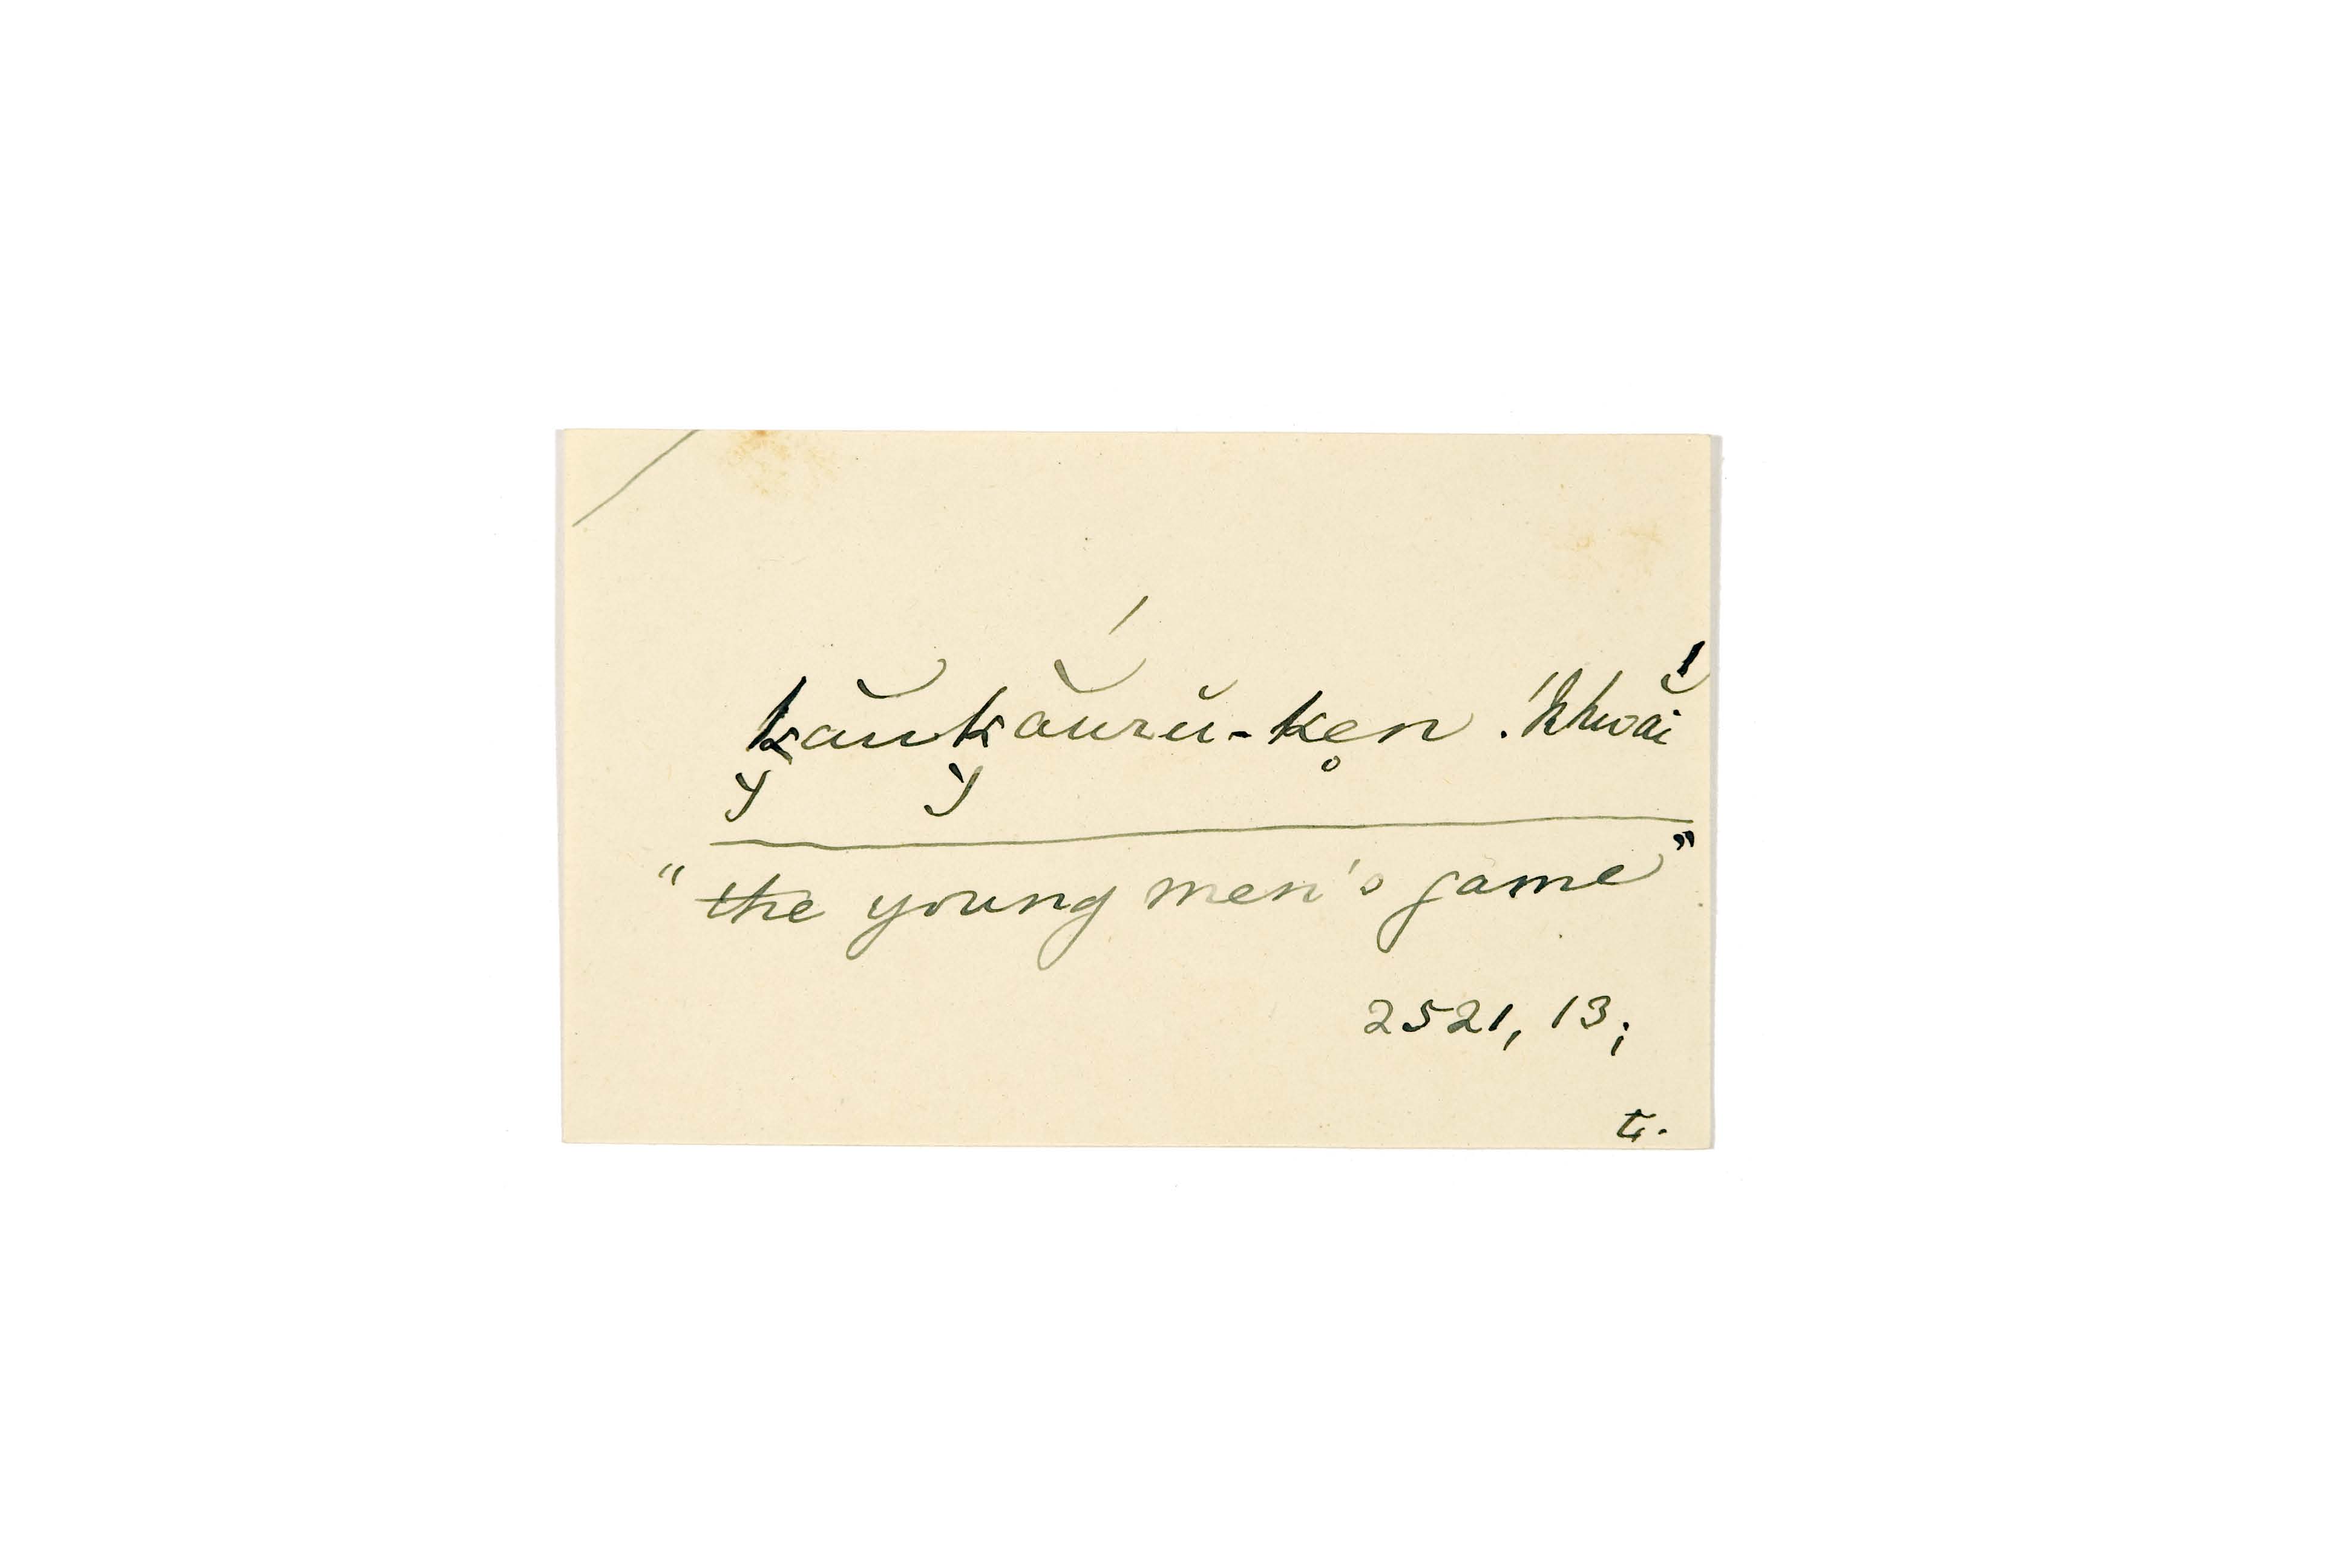 kău̯kắu̯rŭ-ken̥ .!khwắi
"the young men's game"
2521, 13;